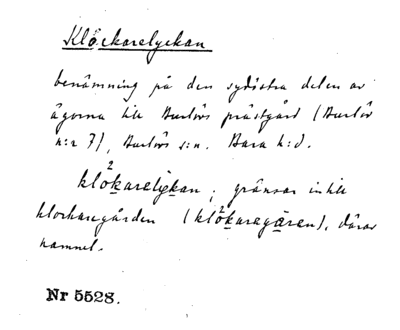 Klöckarelyckan
benämning på den sydöstra delen av
ägorna till Burlövs prästgård (Burlöv
n:r 7), Burlövs s:n. Bara h:d.
klö²karelykan; gränsar intill
klockaregården (klö²karegåren), därav
namnet.
Nr 5528.